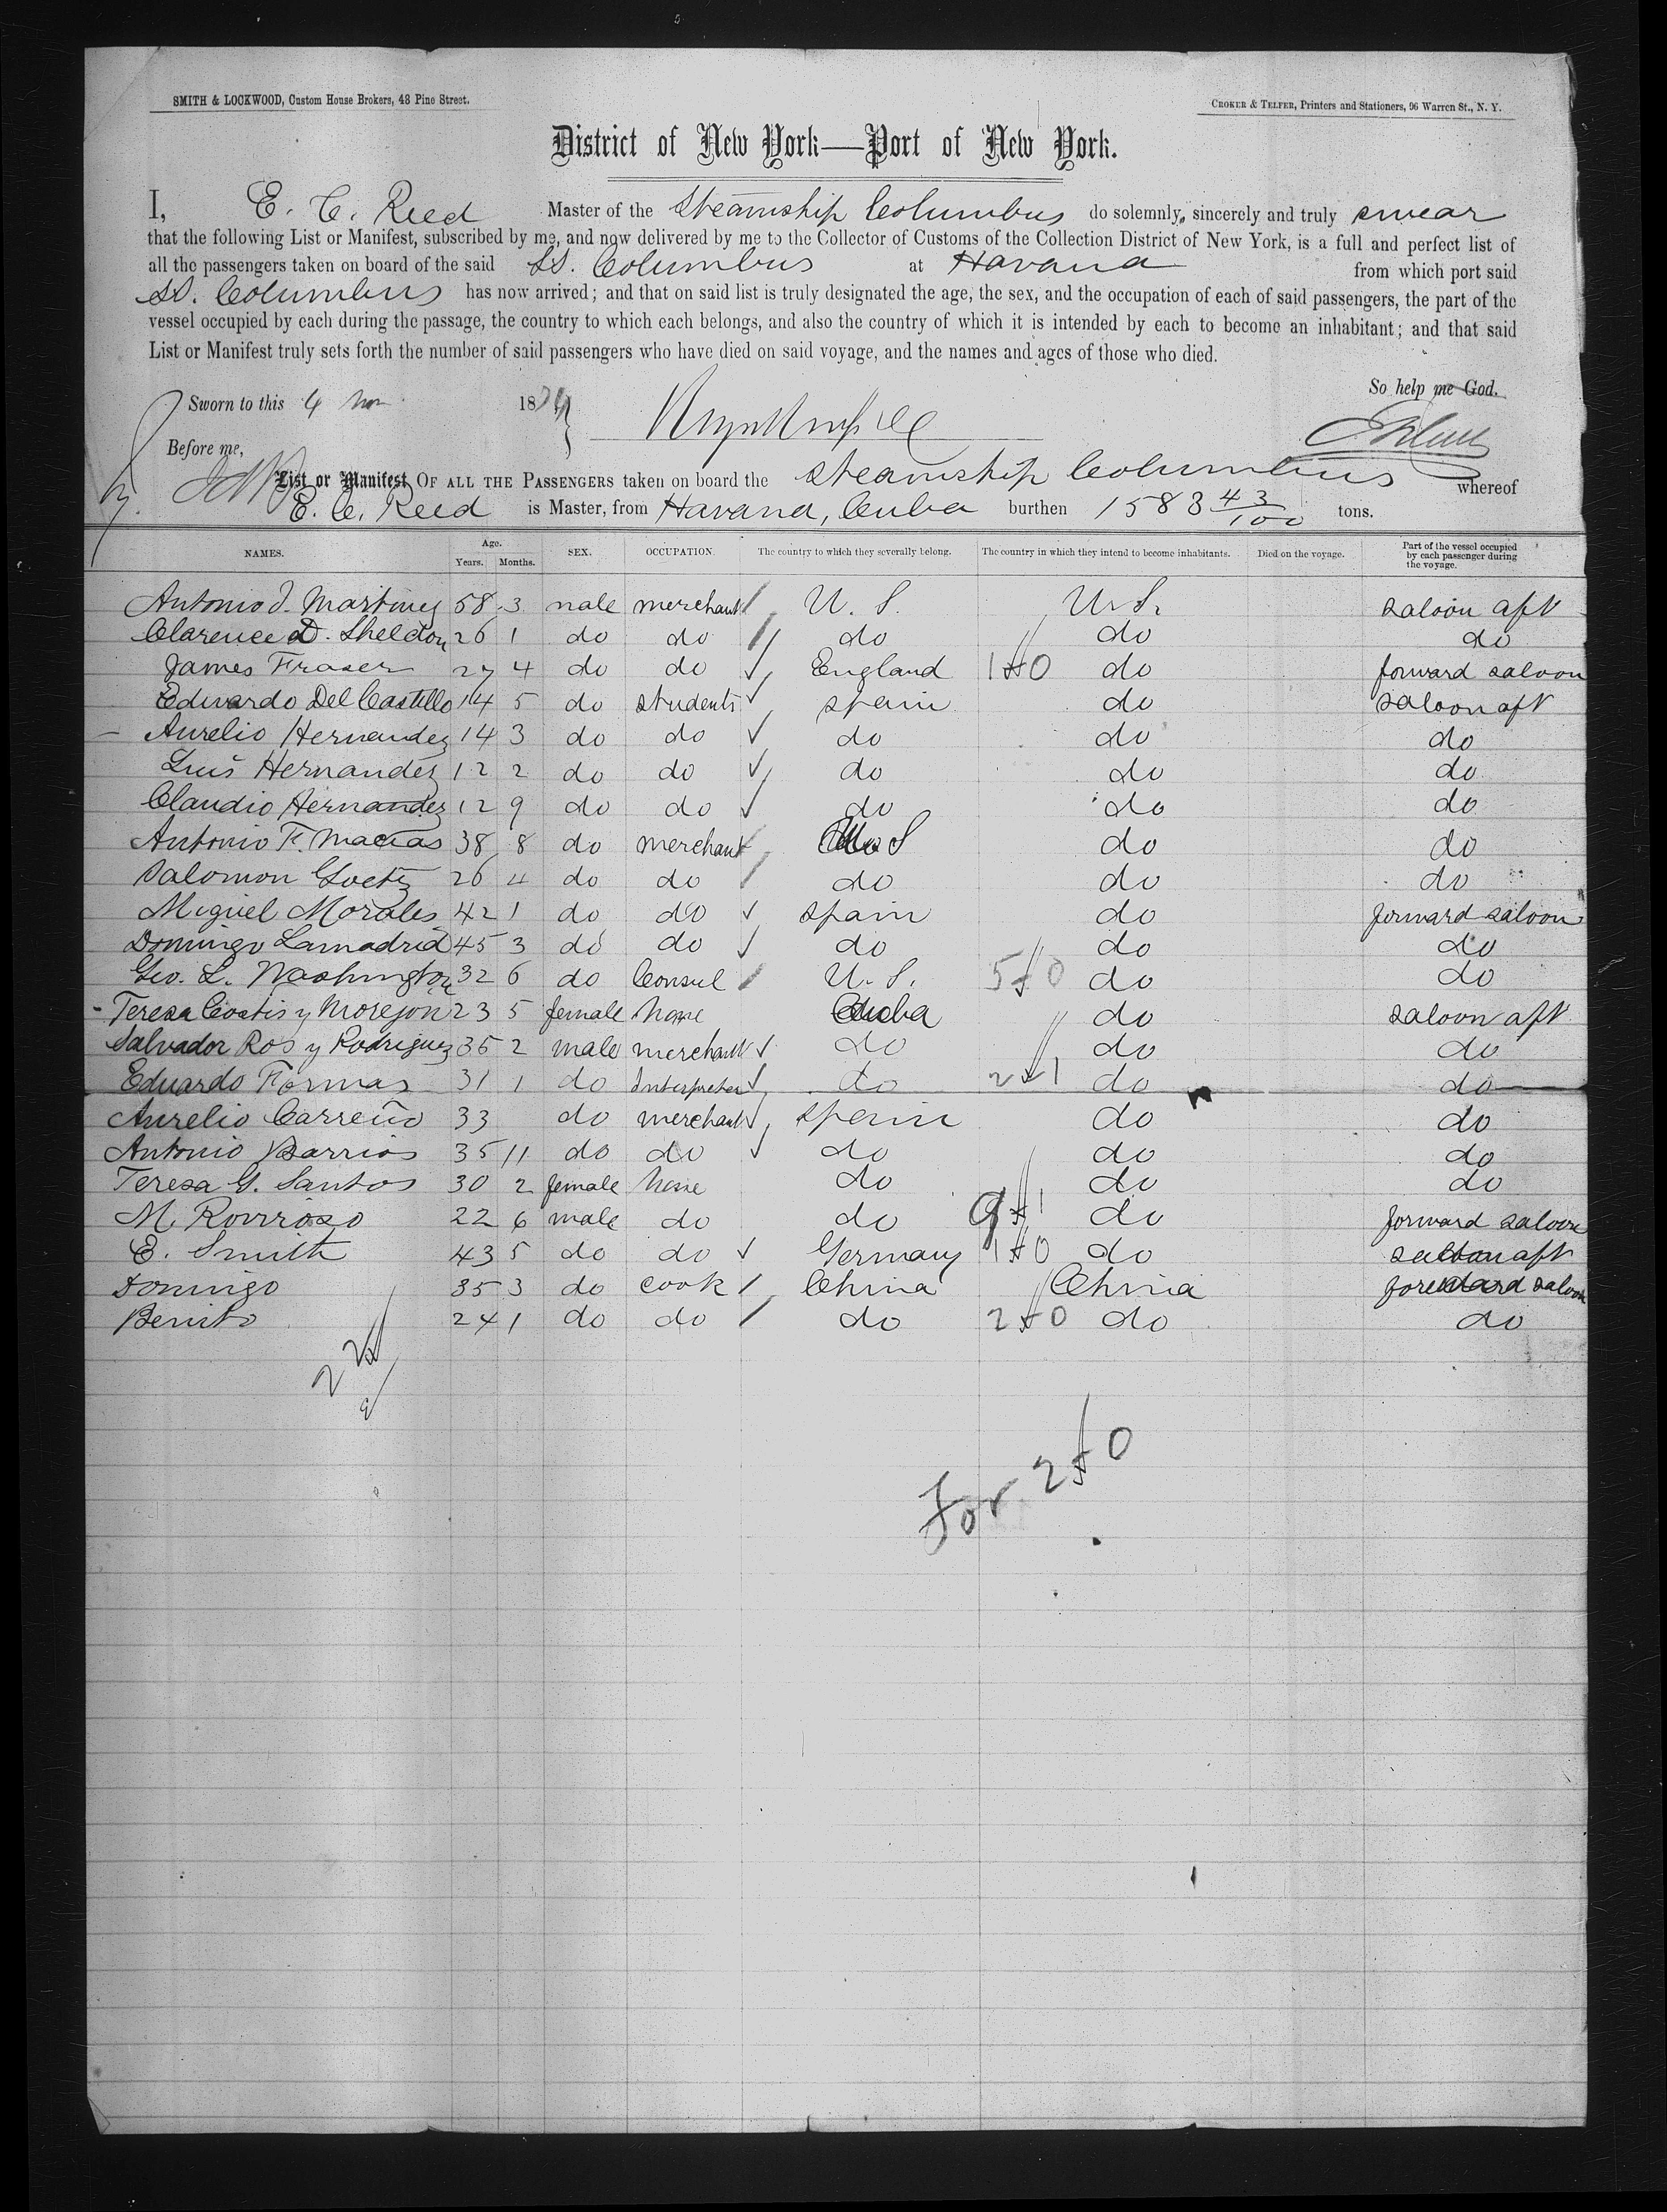 SMITH & LOCKWOOD, Custom House Brokers, 48 Pine Street.
CROKER & TELFER, Printers and Stationers, 96 Warren St., N. Y.
District of New York—Port of New York.
I, E. C. Reed Master of the Steamship Columbus do solemnly, sincerely and truly swear
that the following List or Manifest, subscribed by me, and now delivered by me to the Collector of Customs of the Collection District of New York, is a full and perfect list of
all the passengers taken on board of the said SS. Columbus at Havana from which port said
SS. Columbus has now arrived; and that on said list is truly designated the age, the sex, and the occupation of each of said passengers, the part of the
vessel occupied by each during the passage, the country to which each belongs, and also the country of which it is intended by each to become an inhabitant; and that said
List or Manifest truly sets forth the number of said passengers who have died on said voyage, and the names and ages of those who died.
So help me God.
Sworn to this 4 18
Before me,
List or Manifest OF ALL THE PASSENGERS taken on board the Steamship Columbus whereof
E. C. Reed is Master, from Havana, Cuba burthen 1583 43/100 tons.
NAMES. Age. Years. Months. SEX. OCCUPATION. The country to which they severally belong. The country in which they intend to become inhabitants. Died on the voyage. Part of the vessel occupied by each passenger during the voyage.
Antonio J. Martinez 58 3 male merchant U. S. U. S. saloon aft
Clarence D. Sheldon 26 1 do do do do do
James Fraser 27 4 do do England 1 0 do forward saloon
Eduardo Del Castillo 14 5 do students spain do saloon aft
Aurelio Hernandez 14 3 do do do do do
Luis Hernandez 12 2 do do do do do
Claudio Hernandez 12 9 do do do do do
Antonio F. Macias 38 8 do merchant U S do do
Salomon Goetz 26 4 do do do do do
Miguel Morales 42 1 do do spain do forward saloon
Domingo Lamadrid 45 3 do do do do do
Geo. L. Washington 32 6 do Consul U. S. 5 0 do do
Teresa Costis y Morejon 23 5 female None Cuba do saloon aft
Salvador Ros y Rodriguez 35 2 male merchant do do do
Eduardo Formas 31 1 do Interpreter do 2 1 do do
Aurelio Carreño 33 do merchant spain do do
Antonio Barrios 35 11 do do do do do
Teresa G. Santos 30 2 female None do do do
M. Rovrroso 22 6 male do do 9 1 do forward saloon
E. Smith 43 5 do do Germany 1 0 do saloon aft
Domingo 35 3 do cook China China forward saloon
Benito 24 1 do do do 2 0 do do
22
For 2 0